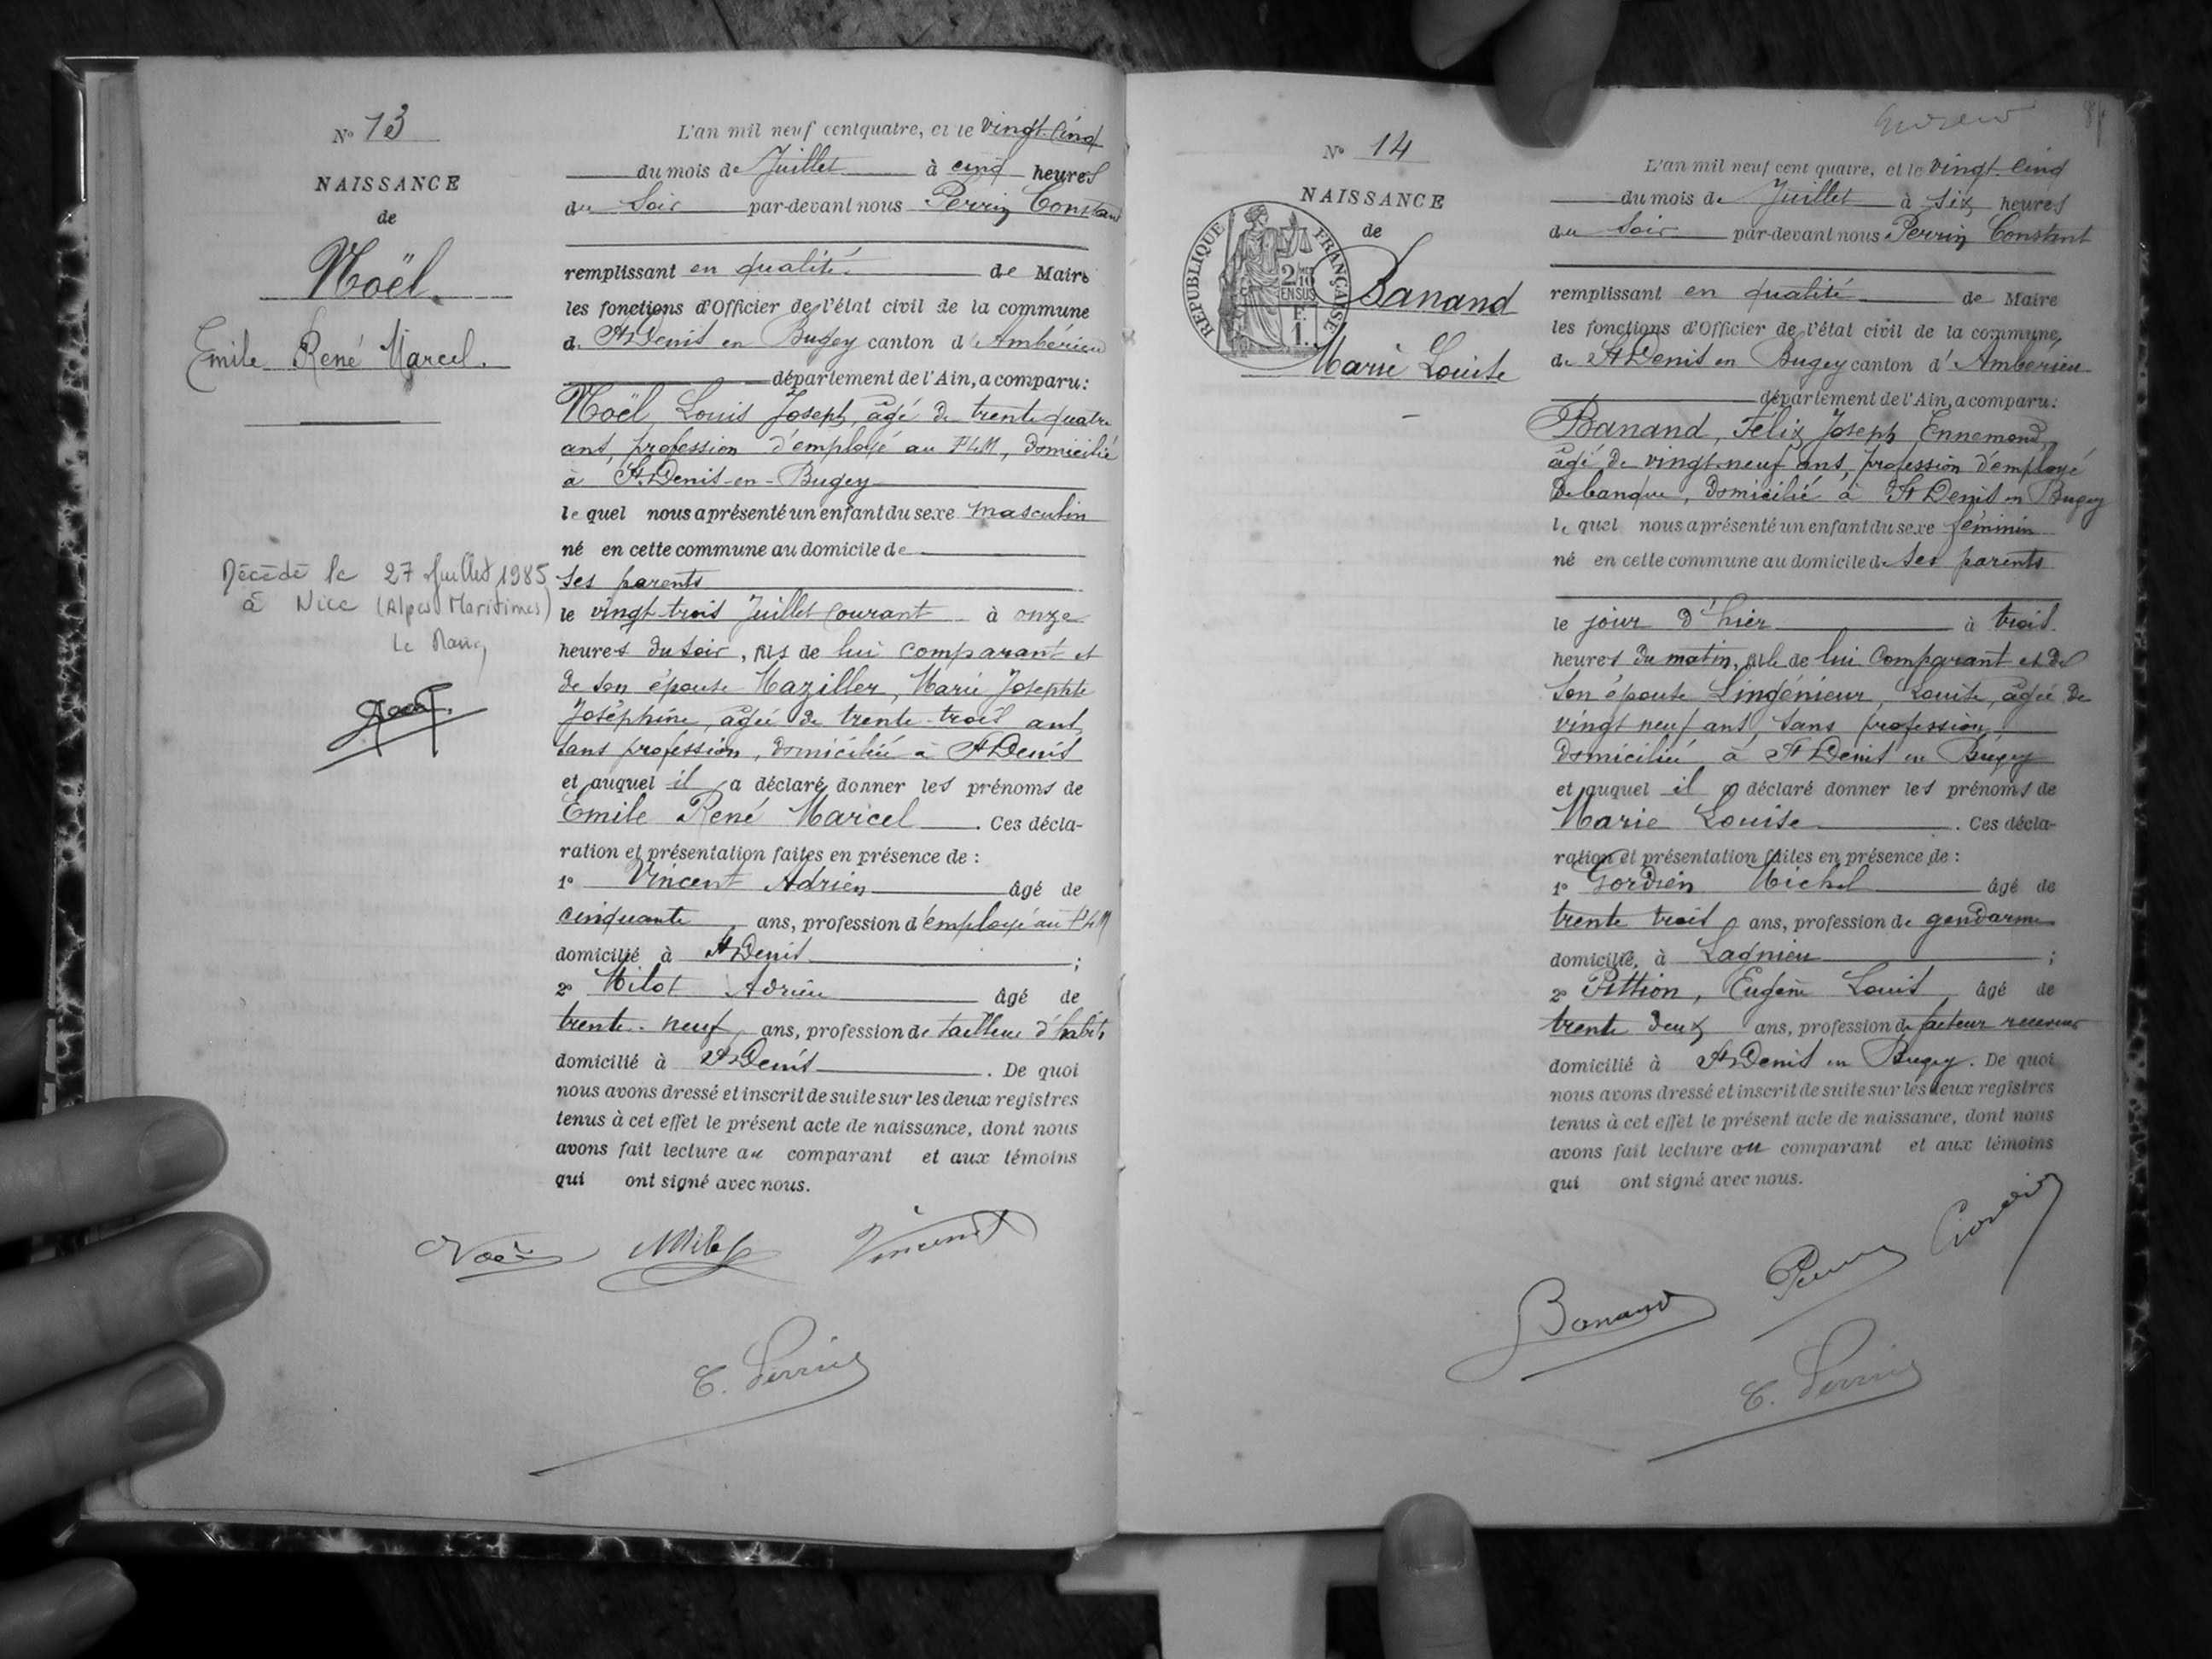 N° 13
NAISSANCE
de
Noël
Emile René Marcel.
Décédé le 27 Juillet 1985
à Nice (Alpes Maritimes)
Le Maire,
L'an mil neuf cent quatre, et le vingt-cinq
du mois de Juillet à cinq heures
du soir par-devant nous Perrin Constant
remplissant en qualité de Maire
les fonctions d'Officier de l'état civil de la commune
d. St Denis en Bugey canton d'Ambérieu
département de l'Ain, a comparu:
Noël Louis Joseph, âgé de trente quatre
ans, profession d'employé au PLM, domicilié
à St Denis-en-Bugey
lequel nous a présenté un enfant du sexe masculin
né en cette commune au domicile de
ses parents
le vingt-trois Juillet courant à onze
heures du soir, fils de lui comparant et
de son épouse Maziller, Marie Josephte
Joséphine, âgée de trente-trois ans,
sans profession, domiciliée à St Denis
et auquel il a déclaré donner les prénoms de
Emile René Marcel. Ces décla-
ration et présentation faites en présence de :
1° Vincent Adrien âgé de
cinquante ans, profession d'employé au PLM
domicilié à St Denis ;
2° Milot Adrien âgé de
trente-neuf ans, profession de tailleur d'habits
domicilié à St Denis. De quoi
nous avons dressé et inscrit de suite sur les deux registres
tenus à cet effet le présent acte de naissance, dont nous
avons fait lecture au comparant et aux témoins
qui ont signé avec nous.
Noël Milot Vincent
C. Perrin
N° 14
NAISSANCE
de
RÉPUBLIQUE FRANÇAISE
2/10 EN SUS
F.
1.
Banand
Marie Louise
L'an mil neuf cent quatre, et le vingt-cinq
du mois de Juillet à six heures
du soir par-devant nous Perrin Constant
remplissant en qualité de Maire
les fonctions d'Officier de l'état civil de la commune
de St Denis en Bugey canton d'Ambérieu
département de l'Ain, a comparu:
Banand, Félix Joseph Ennemond,
âgé de vingt-neuf ans, profession d'employé
de banque, domicilié à St Denis en Bugey
lequel nous a présenté un enfant du sexe féminin
né en cette commune au domicile de ses parents
le jour d'hier à trois
heures du matin, fille de lui comparant et de
son épouse Lingénieur, Louise, âgée de
vingt neuf ans, sans profession,
domiciliée à St Denis en Bugey
et auquel il a déclaré donner les prénoms de
Marie Louise. Ces décla-
ration et présentation faites en présence de :
1° Gordien Michel âgé de
trente trois ans, profession de gendarme
domicilié à Lagnieu ;
2° Pittion, Eugène Louis âgé de
trente deux ans, profession de facteur receveur
domicilié à St Denis en Bugey. De quoi
nous avons dressé et inscrit de suite sur les deux registres
tenus à cet effet le présent acte de naissance, dont nous
avons fait lecture au comparant et aux témoins
qui ont signé avec nous.
Banand Gordien
C. Perrin